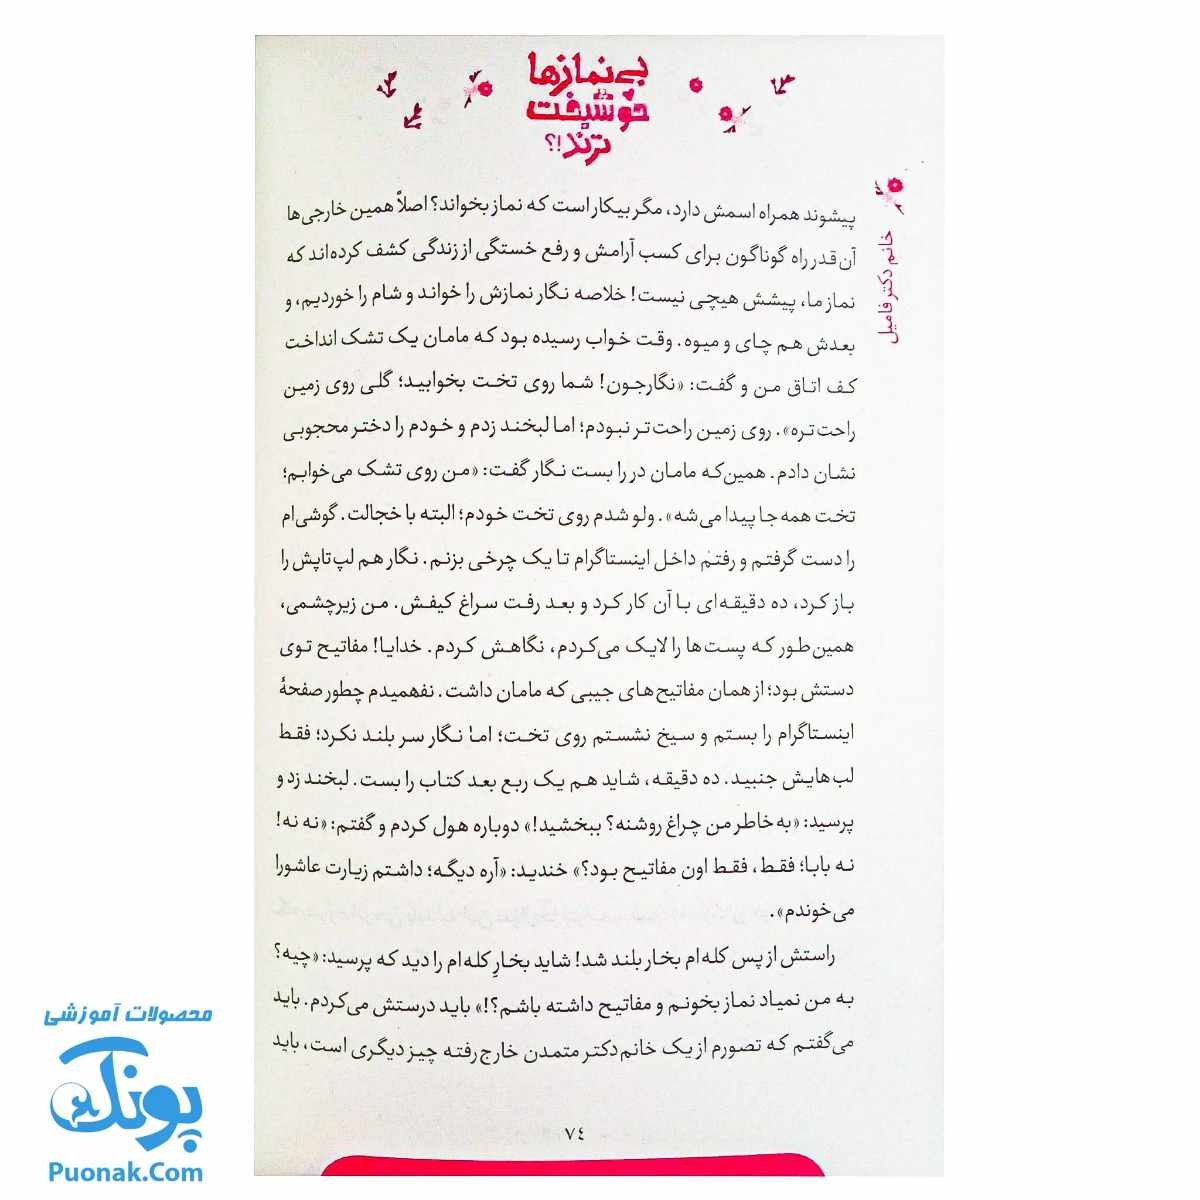 بی‌نمازها
خوشبخت
ترند!؟
خانم دکتر فامیل
پیشوند همراه اسمش دارد، مگر بیکار است که نماز بخواند؟ اصلاً همین خارجی‌ها
آن قدر راه گوناگون برای کسب آرامش و رفع خستگی از زندگی کشف کرده‌اند که
نماز ما، پیشش هیچی نیست! خلاصه نگار نمازش را خواند و شام را خوردیم، و
بعدش هم چای و میوه. وقت خواب رسیده بود که مامان یک تشک انداخت
کف اتاق من و گفت: «نگارجون! شما روی تخت بخوابید؛ گلی روی زمین
راحت‌تره». روی زمین راحت‌تر نبودم؛ اما لبخند زدم و خودم را دختر محجوبی
نشان دادم. همین‌که مامان در را بست نگار گفت: «من روی تشک می‌خوابم؛
تخت همه جا پیدا می‌شه». ولو شدم روی تخت خودم؛ البته با خجالت. گوشی‌ام
را دست گرفتم و رفتم داخل اینستاگرام تا یک چرخی بزنم. نگار هم لپ‌تاپش را
باز کرد، ده دقیقه‌ای با آن کار کرد و بعد رفت سراغ کیفش. من زیرچشمی،
همین‌طور که پست‌ها را لایک می‌کردم، نگاهش کردم. خدایا! مفاتیح توی
دستش بود؛ از همان مفاتیح‌های جیبی که مامان داشت. نفهمیدم چطور صفحهٔ
اینستاگرام را بستم و سیخ نشستم روی تخت؛ اما نگار سر بلند نکرد؛ فقط
لب‌هایش جنبید. ده دقیقه، شاید هم یک ربع بعد کتاب را بست. لبخند زد و
پرسید: «به خاطر من چراغ روشنه؟ ببخشید!» دوباره هول کردم و گفتم: «نه نه!
نه بابا؛ فقط، فقط اون مفاتیح بود؟» خندید: «آره دیگه؛ داشتم زیارت عاشورا
می‌خوندم».
راستش از پس کله‌ام بخار بلند شد! شاید بخارِ کله‌ام را دید که پرسید: «چیه؟
به من نمیاد نماز بخونم و مفاتیح داشته باشم؟!» باید درستش می‌کردم. باید
می‌گفتم که تصورم از یک خانم دکتر متمدن خارج رفته چیز دیگری است، باید
٧٤
محصولات آموزشی
پونک
Puonak.Com